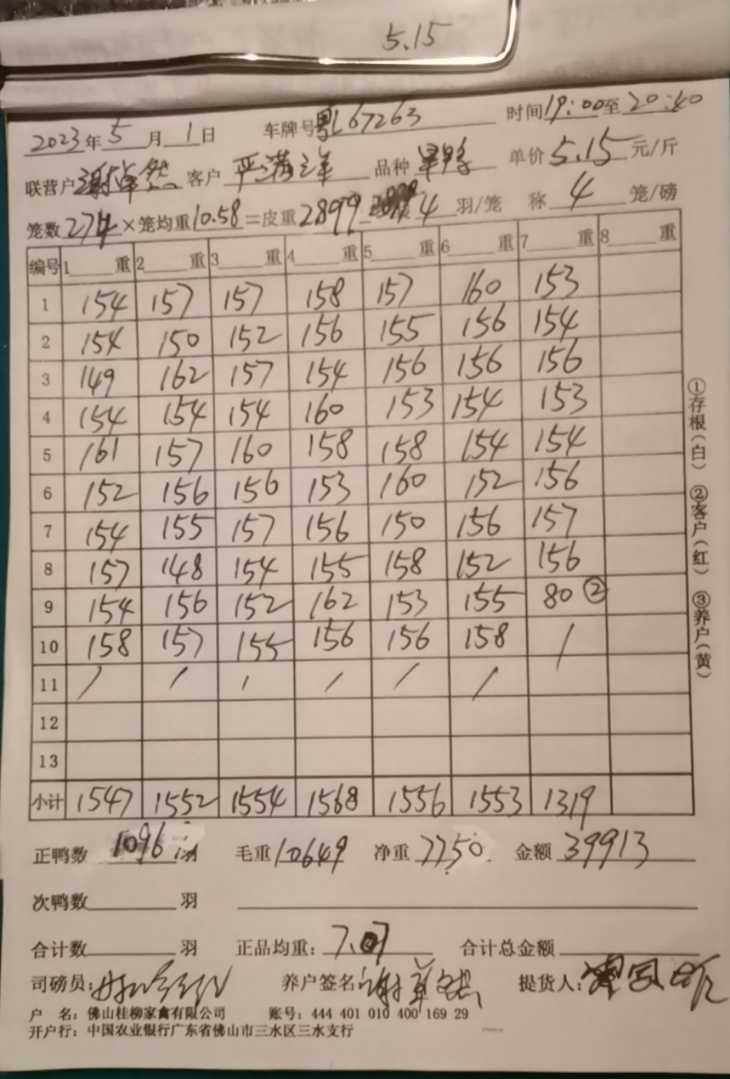 5.15
2023年5月1日 车牌号粤L67263 时间19:00至20:40
联营户谢卓然 客户 品种 单价5.15元/斤
笼数274×笼均重10.58=皮重2899 4羽/笼 称4笼/磅
编号 1 重 2 重 3 重 4 重 5 重 6 重 7 重 8 重
1 154 157 157 158 157 160 153
2 154 150 152 156 155 156 154
3 149 162 157 154 156 156 156
4 154 154 154 160 153 154 153
5 161 157 160 158 158 154 154
6 152 156 156 153 160 152 156
7 154 155 157 156 150 156 157
8 157 148 154 155 158 152 156
9 154 156 152 162 153 155 80 ②
10 158 157 155 156 156 158 /
11 / / / / / /
12
13
小计 1547 1552 1554 1568 1556 1553 1319
正鸭数1096羽 毛重10649 净重7750 金额39913
次鸭数 羽
合计数 羽 正品均重:7.07 合计总金额
司磅员: 养户签名:谢卓然 提货人:
户 名:佛山桂柳家禽有限公司 账号:444 401 010 400 169 29
开户行:中国农业银行广东省佛山市三水区三水支行
①存根(白) ②客户(红) ③养户(黄)